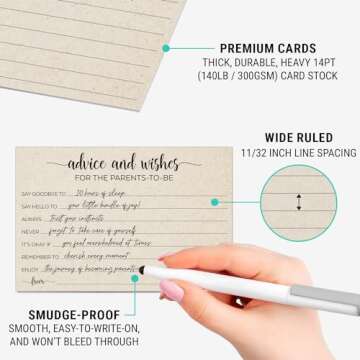 PREMIUM CARDS
THICK, DURABLE, HEAVY 14PT
(140LB / 300GSM) CARD STOCK
WIDE RULED
11/32 INCH LINE SPACING
advice and wishes
FOR THE PARENTS-TO-BE
SAY GOODBYE TO 20 hours of sleep
SAY HELLO TO your little bundle of joy!
ALWAYS trust your instincts
NEVER forget to take care of yourself
IT'S OKAY IF you feel overwhelmed at times
REMEMBER TO cherish every moment
ENJOY the journey of becoming parents
from
SMUDGE-PROOF
SMOOTH, EASY-TO-WRITE-ON,
AND WON'T BLEED THROUGH